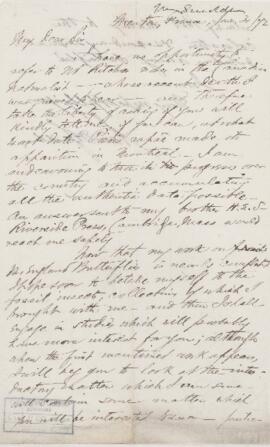 Mentone, France, Jan. 21/72
My Dear Sir
I have no opportunity to
refer to Mr Ritchie's note in the Canadian
Naturalist - whose recent death I
was
take the liberty of asking if you will
kindly tell me, if you can, at what
exact date Pieris rapae made its
apparition in Montreal. I am
endeavoring to trace its progress over
the country and accumulating
all the authentic data possible.
An answer sent to my brother H.O.
Riverside Press, Cambridge, Mass would
reach me safely.
Now that my work on
New England Butterflies is nearly completed
I hope soon to betake myself to the
fossil insects, collections of which I
brought with me - and then I shall
engage in studies which will probably
have more interest for you; although
when the first mentioned work appears,
I will beg you to look at the intro-
ductory matter which I am sure
will contain some matter which
you will be interested in